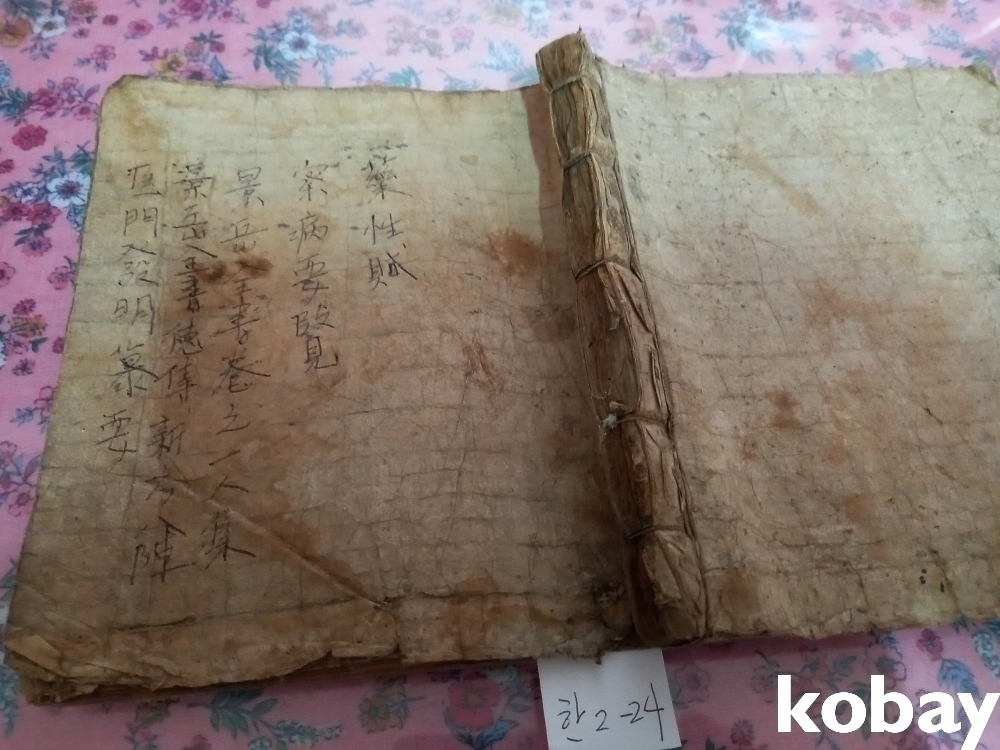 藥性賦
察病要覽
景岳全書卷之一人集
景岳全書德集新方八陣
医門入發明纂要
한2-24
kobay